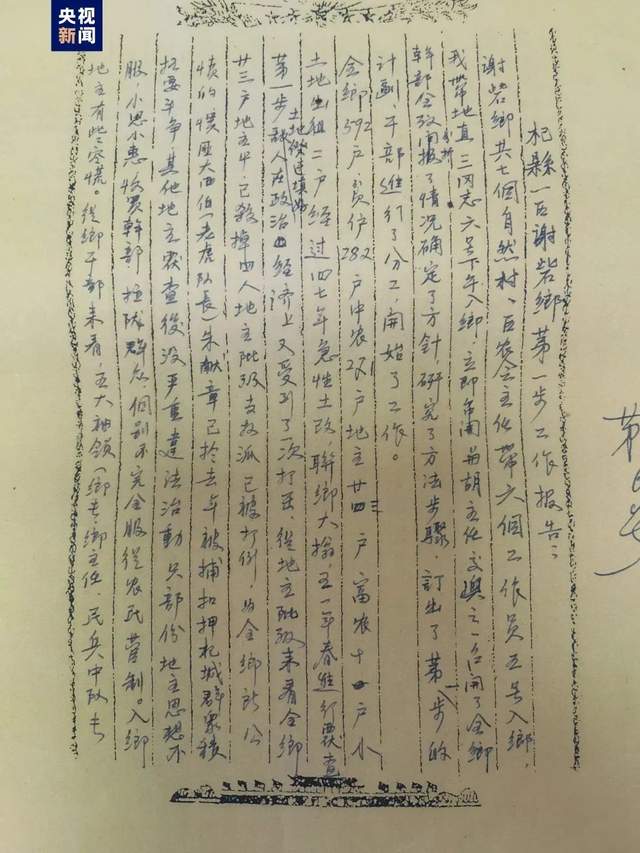 央视
新闻
杞縣一区謝砦鄉第一步工作报告：
謝砦鄉共七個自然村、区农会主任帶六個工作員五号入鄉，
我帶地直三同志六号下午入鄉，立即帝開与胡主任交換之一召開了全鄉
幹部会分析研报了情况确定了方針，研究了方法步驟，訂出了第一步的
計劃，干部進行了分工，開始了工作。
全鄉592户貧伱282户中农271户地主廿四户富农十四户小
土地出租二户經过四七年急性土改，聯鄉大搧，五一年春進行覆查
土地證填發
第一步鄉人在政治的經济上又受到了一次打击從地主阶级来看全鄉
廿三户地主中已殺掉四人地主阶级当权派已被打倒，为全鄉所公
恨的惯匪大西伯（老虎队長）朱献章已於去年被捕扣押杞城群眾積
扰要斗争，其他地主覆查後没严重違法活動只部份地主思想不
服，小恩小惠收買幹部拉拢群众，個别不完全服從农民管制。入鄉
地主有些恐慌。從鄉干部来看，五大袖领（鄉长、鄉主任、民兵中队长
第